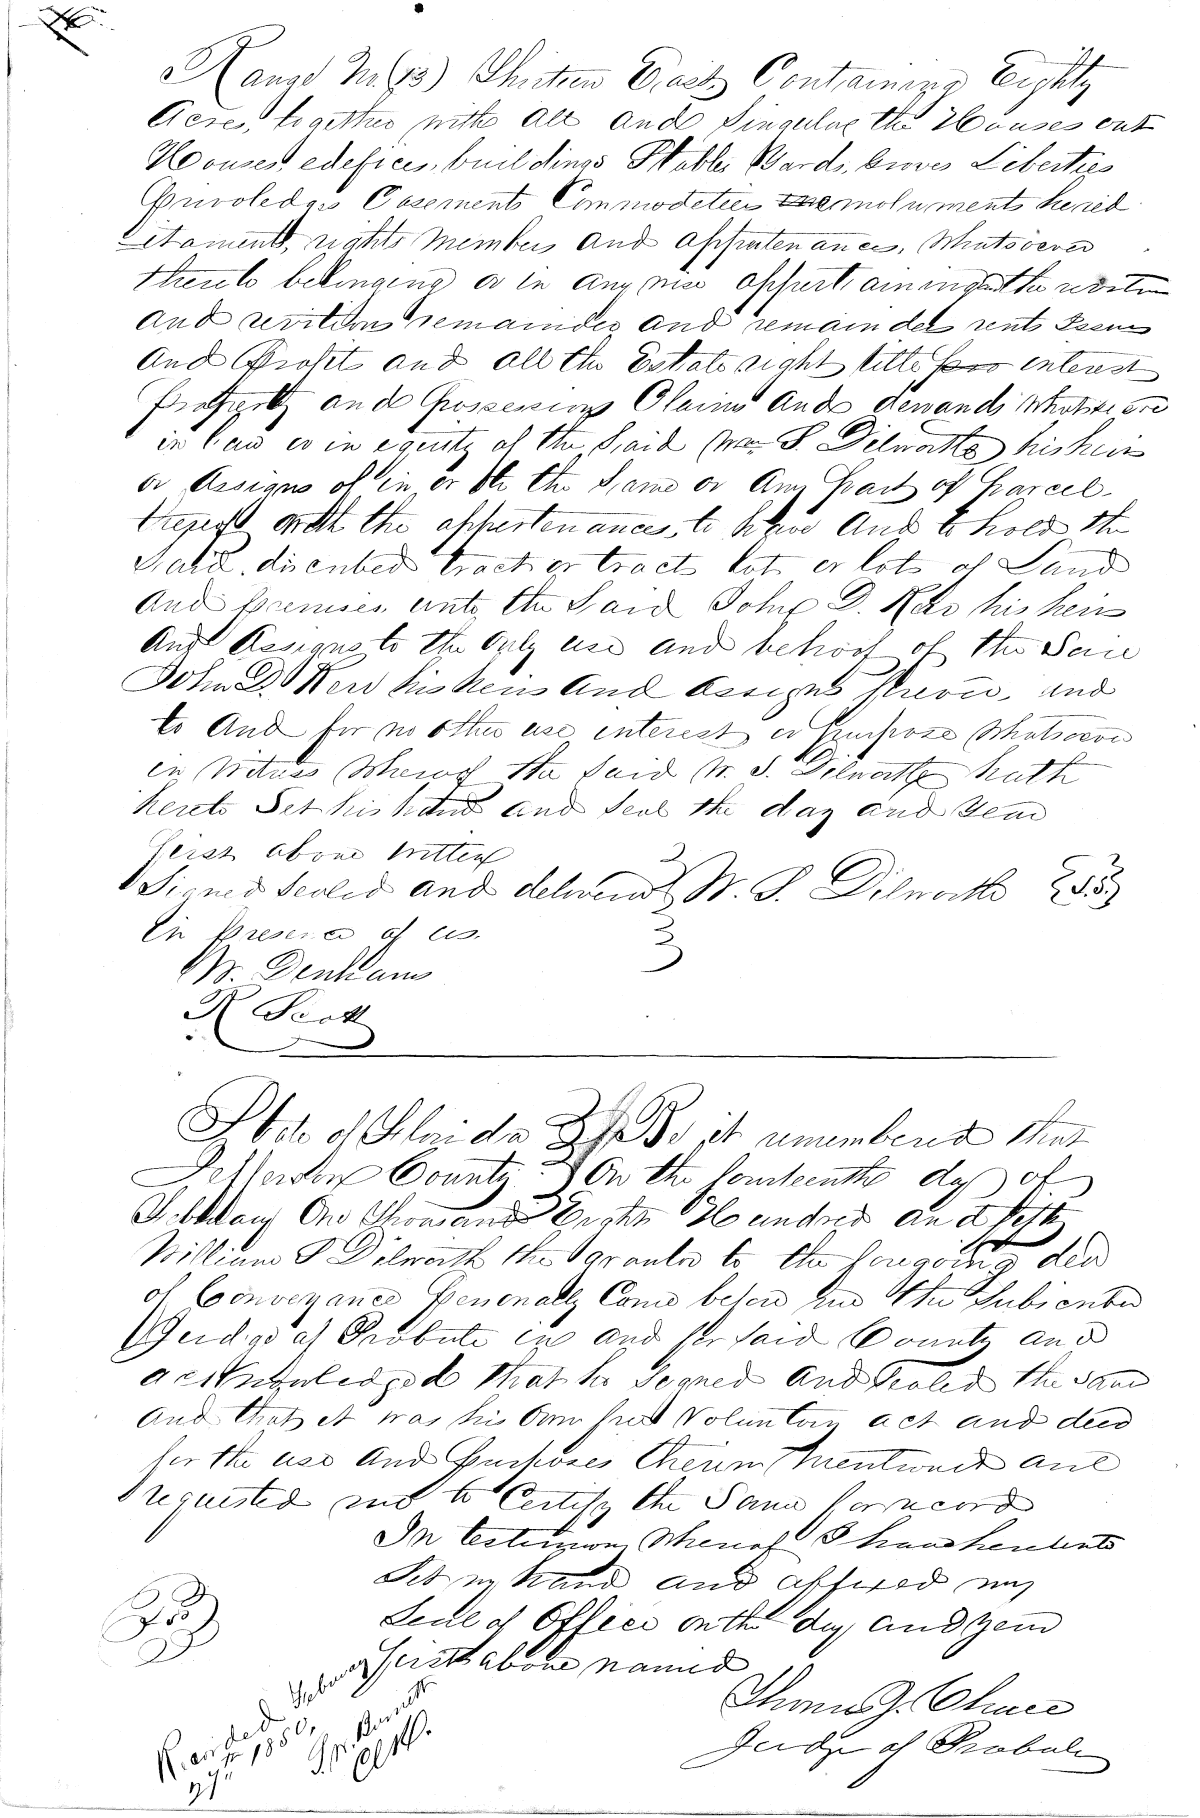 Range No. (13) Thirteen East, Containing Eighty
Acres, together with all and Singular the Houses out
Houses, edefices, buildings Stables Yards, Groves Liberties
Priveledges Easements Commodeties emoluments hered
itaments, rights members and appurtenances, Whatsoever
thereto belonging or in any wise appertaining and the
and revertions remainder and remainders rents Issues
and Profits and all the Estate right title interest
Property and Possessions Claims and demands Whatsoever
in Law or in equity of the Said Wm S. Dilworth his heirs
or Assigns of in or to the Same or Any Part of Parcel
thereof with the appertenances, to have And to hold the
Said. discribed tract or tracts lot or lots of Land
And Premises unto the Said John D. Kerr his heirs
And Assigns to the only use and behoof of the Said
John D. Kerr his heirs And Assigns forever, and
to And for no other use interest or Purpose Whatsoever
in Witness Whereof the Said W. S. Dilworth hath
hereto Set his hand and Seal the day and Year
first above Written
Signed Sealed and delivered W. S. Dilworth {L.S.}
in Presence of us.
W. Denham
R Scott
State of Florida } Be it remembered that
Jefferson County } On the fourteenth day of
February One Thousand Eight Hundred and fifty
William S Dilworth the Grantor to the foregoing deed
of Conveyance Personally Came before me the Subscriber
Judge of Probate in and for Said County and
acknowledged that he Signed and Sealed the Same
And that it was his Own free Voluntary act and deed
for the use and Purposes therein mentioned and
requested me to Certify the Same for record
In testimony Whereof I have hereunto
Set my hand and affixed my
Seal of Office on the day and year
first above named
Thomas J. Chace
Judge of Probate
Recorded February
27th 1850,
Clk.